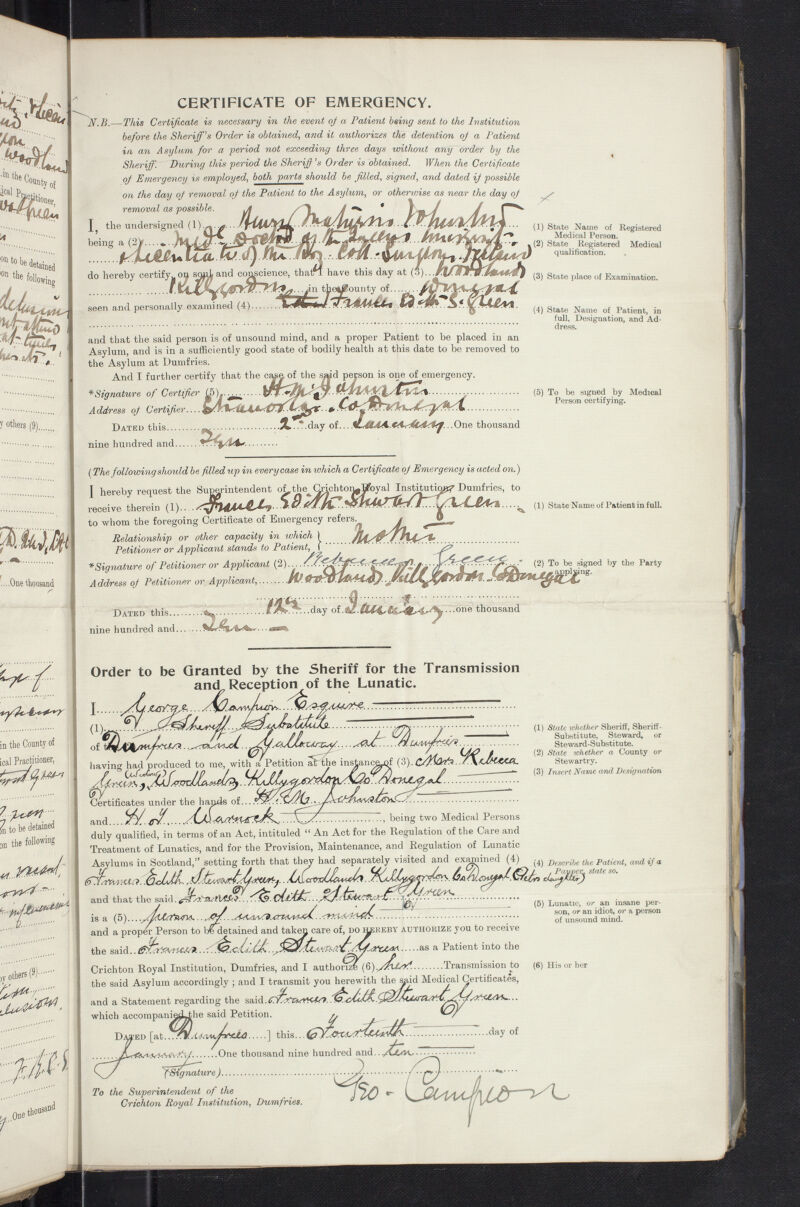 CERTIFICATE OF EMERGENCY.
N.B.—This Certificate is necessary in the event of a Patient being sent to the Institution
before the Sheriff's Order is obtained, and it authorizes the detention of a Patient
in an Asylum for a period not exceeding three days without any order by the
Sheriff. During this period the Sheriff's Order is obtained. When the Certificate
of Emergency is employed, both parts should be filled, signed, and dated if possible
on the day of removal of the Patient to the Asylum, or otherwise as near the day of
removal as possible.
I, the undersigned (1) Henry Maturin Johnston
being a (2) Medl Doctor of the
& Licentiate of the Roy. Coll. Surgeons Ireland
do hereby certify, on soul and conscience, that I have this day at (3) Woodlands
Killygordon in the County of Donegal
seen and personally examined (4) Frances Edith S. Green
and that the said person is of unsound mind, and a proper Patient to be placed in an
Asylum, and is in a sufficiently good state of bodily health at this date to be removed to
the Asylum at Dumfries.
And I further certify that the case of the said person is one of emergency.
*Signature of Certifier (5) H. M. Johnston
Address of Certifier Stranorlar Co Donegal
DATED this day of January One thousand
nine hundred and Ten
(The following should be filled up in every case in which a Certificate of Emergency is acted on.)
I hereby request the Superintendent of the Crichton Royal Institution, Dumfries, to
receive therein (1) Frances Edith Stewart Green
to whom the foregoing Certificate of Emergency refers.
Relationship or other capacity in which
Petitioner or Applicant stands to Patient, } Mother
*Signature of Petitioner or Applicant (2) Rebecca Green
Address of Petitioner or Applicant, Woodlands Killygordon Co Donegal
DATED this 12th day of January one thousand
nine hundred and Ten —
Order to be Granted by the Sheriff for the Transmission
and Reception of the Lunatic.
I George Campion Esquire
(1) Sheriff Substitute
of Dumfries and Galloway at Dumfries
having had produced to me, with a Petition at the instance of (3) Mrs Rebecca
Green, Widow, Woodlands, Killygordon Co Donegal
Certificates under the hands of H. M. Johnston
and H. T. Warnock, being two Medical Persons
duly qualified, in terms of an Act, intituled "An Act for the Regulation of the Care and
Treatment of Lunatics, and for the Provision, Maintenance, and Regulation of Lunatic
Asylums in Scotland," setting forth that they had separately visited and examined (4)
Frances Edith Stewart Green, Woodlands Killygordon Co Donegal (Petrs daughter)
and that the said Frances Edith Stewart Green
is a (5) person of unsound mind
and a proper Person to be detained and taken care of, DO HEREBY AUTHORIZE you to receive
the said Frances Edith Stewart Green as a Patient into the
Crichton Royal Institution, Dumfries, and I authorize (6) her Transmission to
the said Asylum accordingly; and I transmit you herewith the said Medical Certificates,
and a Statement regarding the said Frances Edith Stewart Green
which accompanied the said Petition.
DATED [at Dumfries] this Fourteenth day of
January One thousand nine hundred and ten
(Signature)
Geo. Campion
To the Superintendent of the
Crichton Royal Institution, Dumfries.
(1) State Name of Registered
Medical Person.
(2) State Registered Medical
qualification.
(3) State place of Examination.
(4) State Name of Patient, in
full, Designation, and Ad-
dress.
(5) To be signed by Medical
Person certifying.
(1) State Name of Patient in full.
(2) To be signed by the Party
applying.
(1) State whether Sheriff, Sheriff-
Substitute, Steward, or
Steward-Substitute.
(2) State whether a County or
Stewartry.
(3) Insert Name and Designation
(4) Describe the Patient, and if a
Pauper, state so.
(5) Lunatic, or an insane per-
son, or an idiot, or a person
of unsound mind.
(6) His or her
woodland
in the County of
on to be detained
on the following
y others (9)
One thousand
in the County of
ical Practitioner,
on to be detained
on the following
y others (9)
One thousand